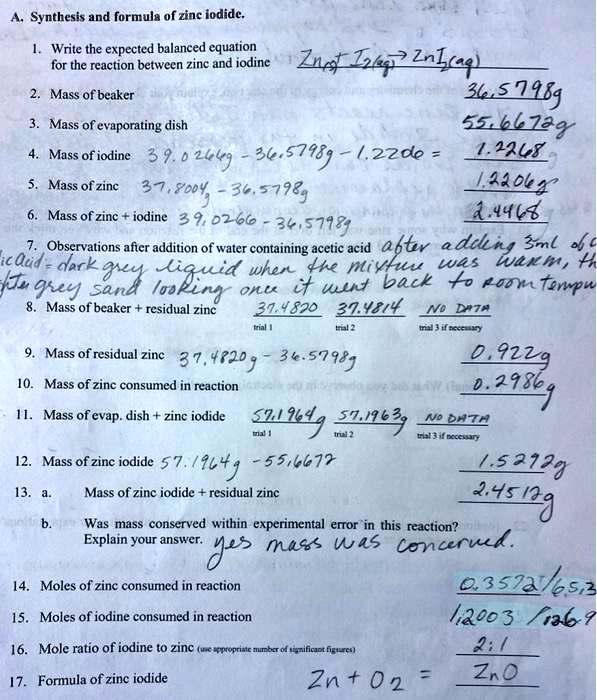 A. Synthesis and formula of zinc iodide.
1. Write the expected balanced equation
for the reaction between zinc and iodine Zn(s) + I2(aq) → ZnI2(aq)
2. Mass of beaker 36.5798g
3. Mass of evaporating dish 55.6672g
4. Mass of iodine 39.0266g - 36.5798g - 1.2206 = 1.2268
5. Mass of zinc 37.8004 - 36.5798g 1.2206g
6. Mass of zinc + iodine 39.0266 - 36.5798g 2.4468
7. Observations after addition of water containing acetic acid after adding 3ml of
dark grey liquid when the mixture was warm,
grey sand looking once it went back to room
8. Mass of beaker + residual zinc 37.4820 37.4814 NO DATA
trial 1 trial 2 trial 3 if necessary
9. Mass of residual zinc 37.4820g - 36.5798g 0.922g
10. Mass of zinc consumed in reaction 0.2986g
11. Mass of evap. dish + zinc iodide 57.1964g 57.1963g NO DATA
trial 1 trial 2 trial 3 if necessary
12. Mass of zinc iodide 57.1964g - 55.6672 1.5292g
13. a. Mass of zinc iodide + residual zinc 2.4512g
b. Was mass conserved within experimental error in this reaction?
Explain your answer. yes mass was concerved.
14. Moles of zinc consumed in reaction 0.3572/65.3
15. Moles of iodine consumed in reaction 1.2003/126.9
16. Mole ratio of iodine to zinc (use appropriate number of significant figures) 2:1
17. Formula of zinc iodide Zn + O2 = ZnO